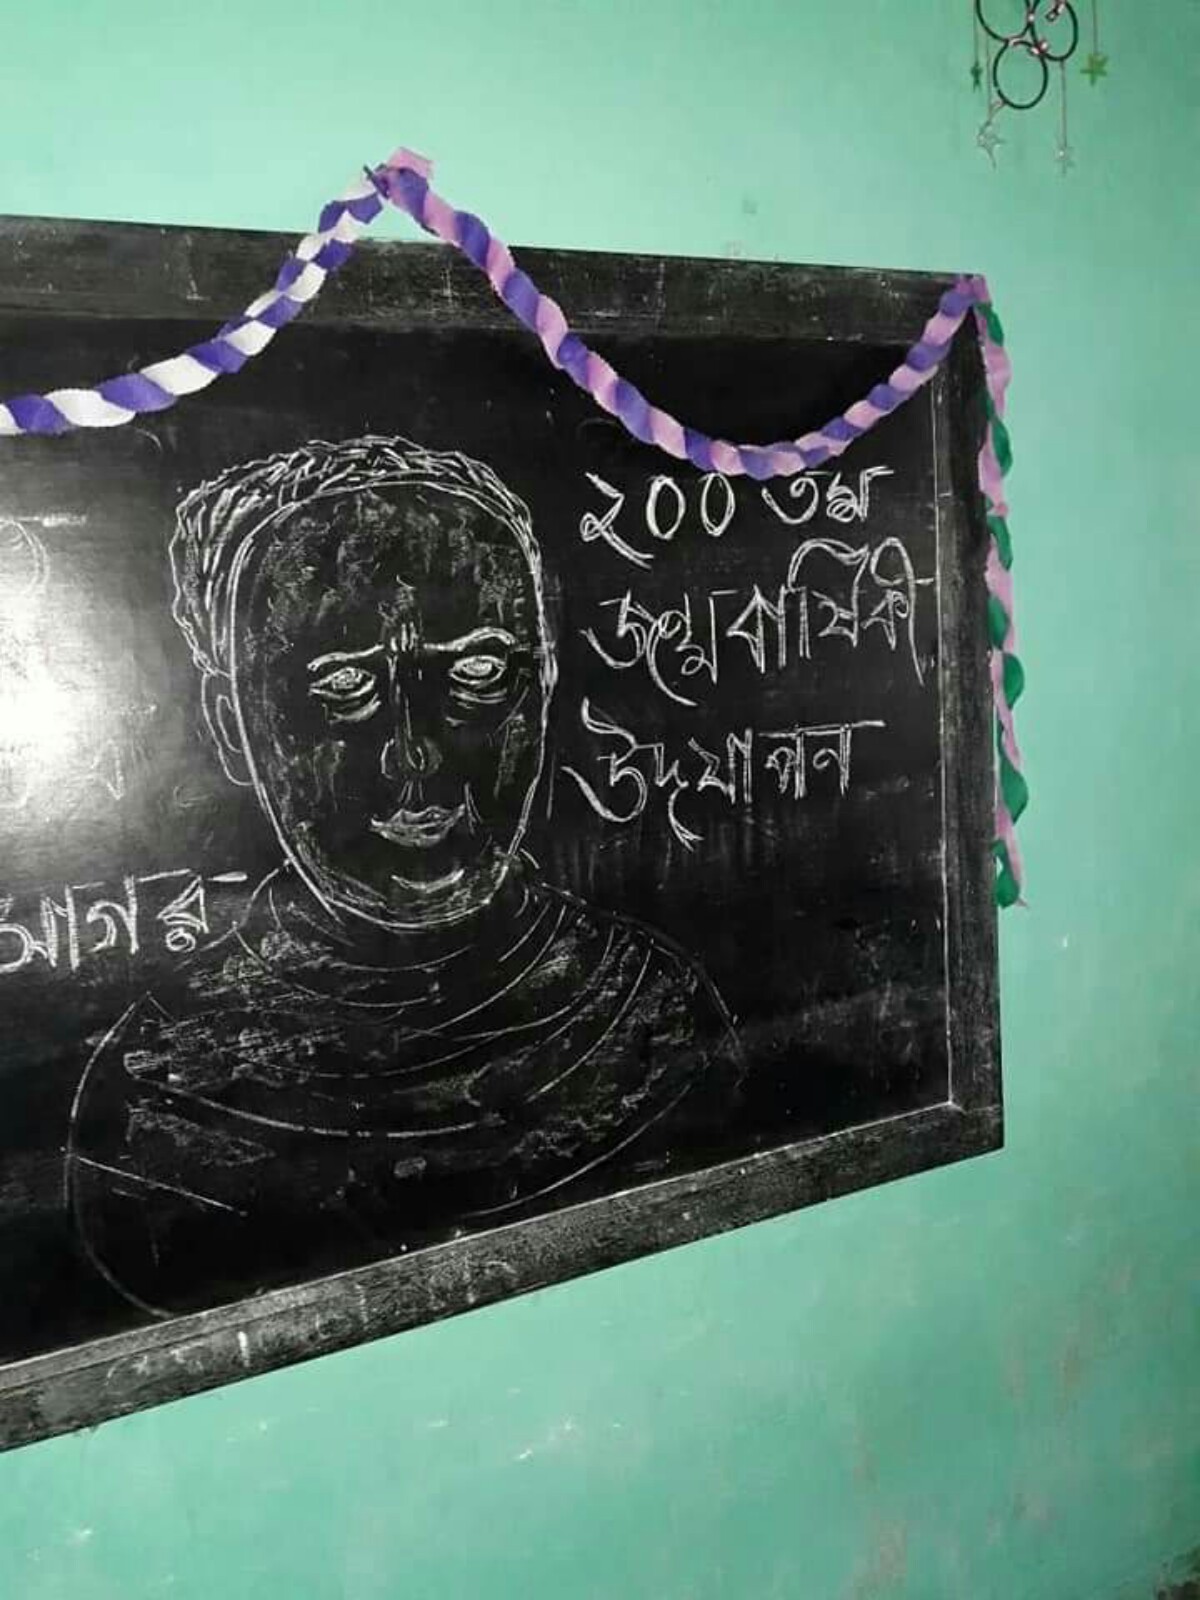 ২০০ তম
জন্মবার্ষিকী
উদযাপন
সাগর